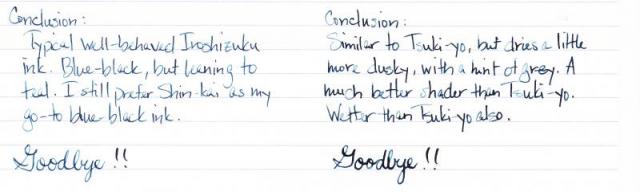 Conclusion:
Typical well-behaved Iroshizuku
ink. Blue-black, but leaning to
teal. I still prefer Shin-kai as my
go-to blue black ink.
Goodbye!!
Conclusion:
Similar to Tsuki-yo, but dries a little
more dusky, with a hint of grey. A
much better shader than Tsuki-yo.
Wetter than Tsuki-yo also.
Goodbye!!